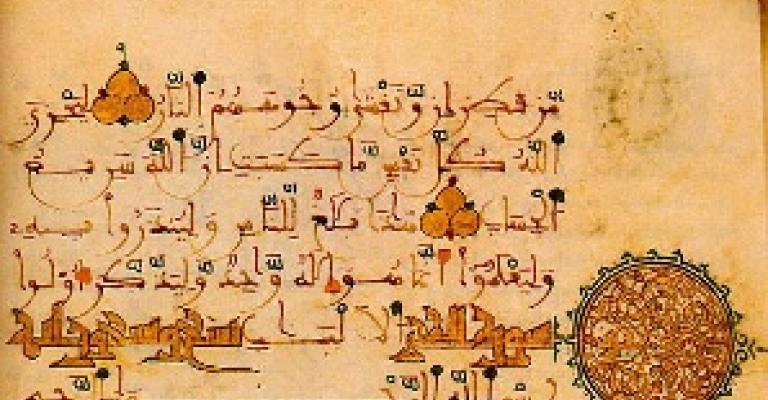 من قطران وتغشى وجوههم النار ليجزي
الله كل نفس ما كسبت إن الله سريع
الحساب هذا بلغ للناس ولينذروا به
وليعلموا أنما هو إله واحد وليذكر أولوا
سورة الحجر الالبب
بسم الله الر